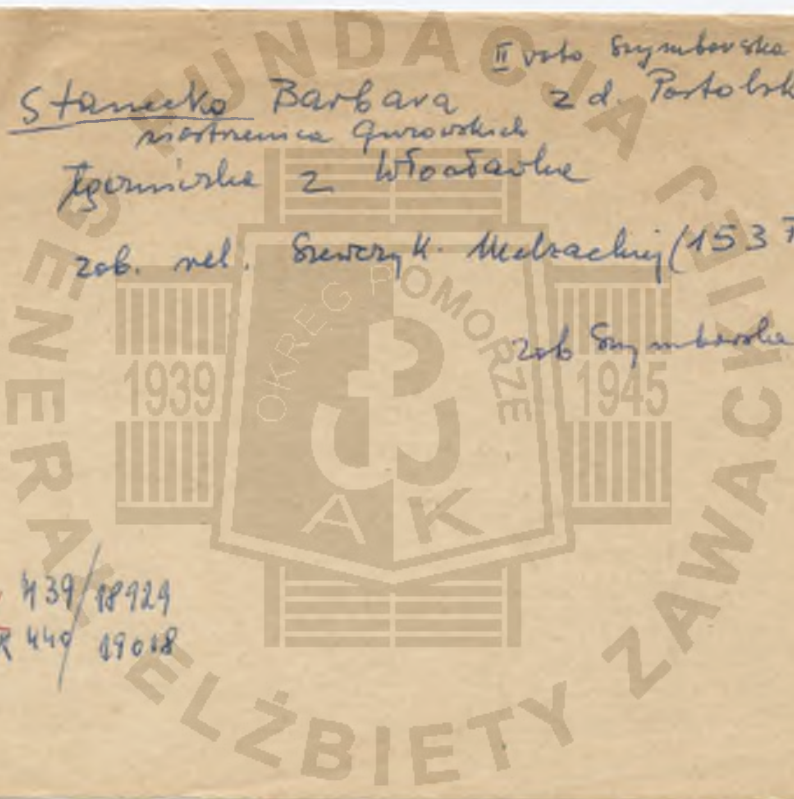 II voto Szymborska
Stanecko Barbara z d. Portolsk
siostrzenica Gurowskich
Łączniczka z Włocławka
zob. rel. Szewczyk. Melzackiej (153 7
zob Szymborska
439/18929
R 440 19018
FUNDACJA GENERAŁ ELŻBIETY ZAWACKIEJ
OKRĘG POMORZE
1939 1945
AK